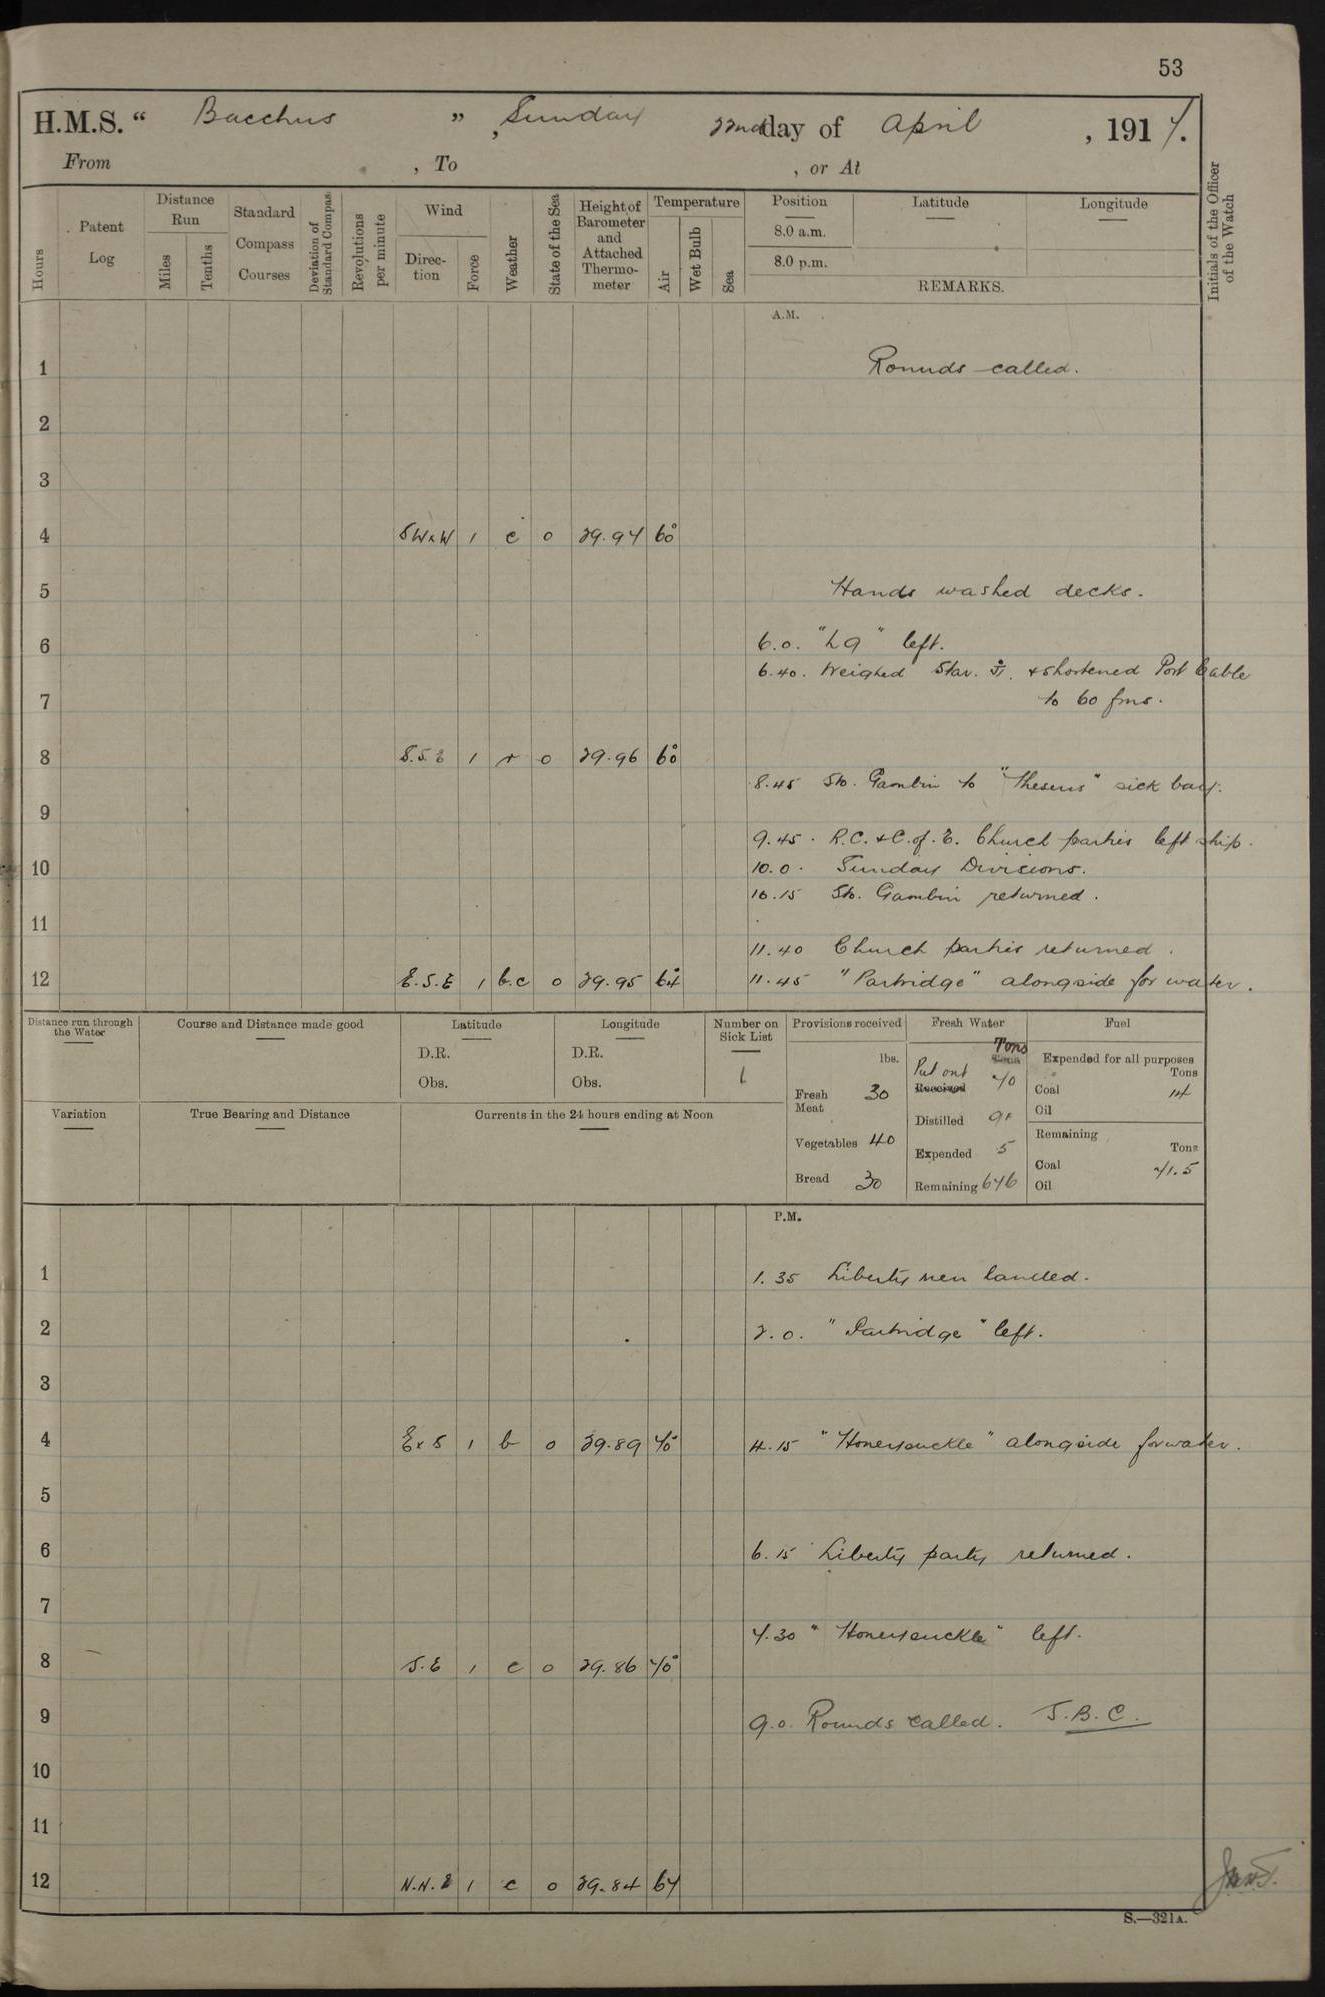 53
H.M.S. “ Bacchus ” , Sunday 22nd day of April , 1917.
From , To , or At
Hours
Patent Log
Distance Run
Miles
Tenths
Standard Compass Courses
Deviation of Standard Compass
Revolutions per minute
Wind
Direction
Force
Weather
State of the Sea
Height of Barometer and Attached Thermometer
Temperature
Air
Wet Bulb
Sea
Position
8.0 a.m.
8.0 p.m.
Latitude
Longitude
REMARKS.
Initials of the Officer of the Watch
A.M.
1 Rounds called.
2
3
4 SWxW 1 c 0 29.97 60°
5 Hands washed decks.
6 6.0. "L9" left.
6.40. Weighed Star. & shortened Port Cable
7 to 60 fms.
8 S.S.E 1 r 0 29.96 60°
8.45 Sto. Gambin to "Theseus" sick bay.
9
9.45. R.C. & C. of. E. Church parties left ship.
10 10.0. Sunday Divisions.
10.15 Sto. Gambin returned.
11
11.40 Church parties returned.
12 E.S.E 1 b.c 0 29.95 64° 11.45 "Partridge" alongside for water.
Distance run through the Water
Course and Distance made good
Latitude
D.R.
Obs.
Longitude
D.R.
Obs.
Number on Sick List
1
Provisions received
lbs.
Fresh Meat 30
Vegetables 40
Bread 30
Fresh Water
Tons
Put out 70
Received
Distilled
Expended 5
Remaining 676
Fuel
Expended for all purposes
Tons
Coal 14
Oil
Remaining
Tons
Coal 71.5
Oil
Variation
True Bearing and Distance
Currents in the 24 hours ending at Noon
P.M.
1 1.35 Liberty men landed.
2 2.0. "Partridge" left.
3
4 ExS 1 b 0 29.89 70° 4.15 "Honeysuckle" alongside for water.
5
6 6.15 Liberty party returned.
7
7.30 "Honeysuckle" left.
8 S.E 1 c 0 29.86 70°
9 9.0. Rounds called. J.B.C.
10
11
12 N.N.E 1 c 0 29.84 67
S.—321A.